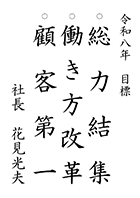 令和八年 目標
◎総力結集
◎働き方改革
◎顧客第一
社長 花見光夫